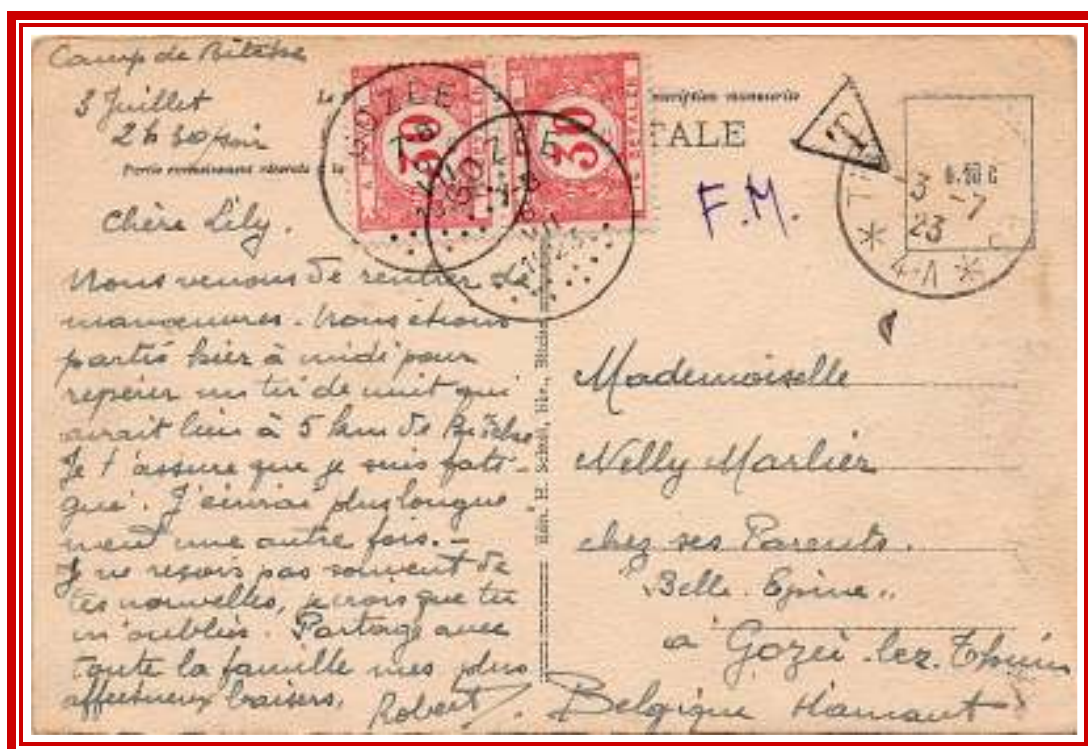 Camp de Bitche
3 Juillet
2h30 soir
Partie exclusivement réservée à la
cription manuscrite
TALE
T
F.M.
0.10 C
-3
-7
23
4-A
GOZEE
GOZEE
A PAYER
30
TE BETALEN
30
TE BETALEN
Chère Lily.
Nous venons de rentrer de
manoeuvres. Nous étions
partis hier à midi pour
repérer un tir de nuit qui
aurait lieu à 5 km de Bitche
Je t'assure que je suis fati-
gué. J'écrirai plus longue
ment une autre fois. -
Je ne reçois pas souvent de
tes nouvelles, je crois que tu
m'oublies. Partage avec
toute la famille mes plus
affectueux baisers.
Robert
Edit. H. Schoell, Bitche
Mademoiselle
Nelly Marlier
chez ses Parents.
"Belle. Epine"
à Gozée-lez-Thuin
Belgique Hainaut